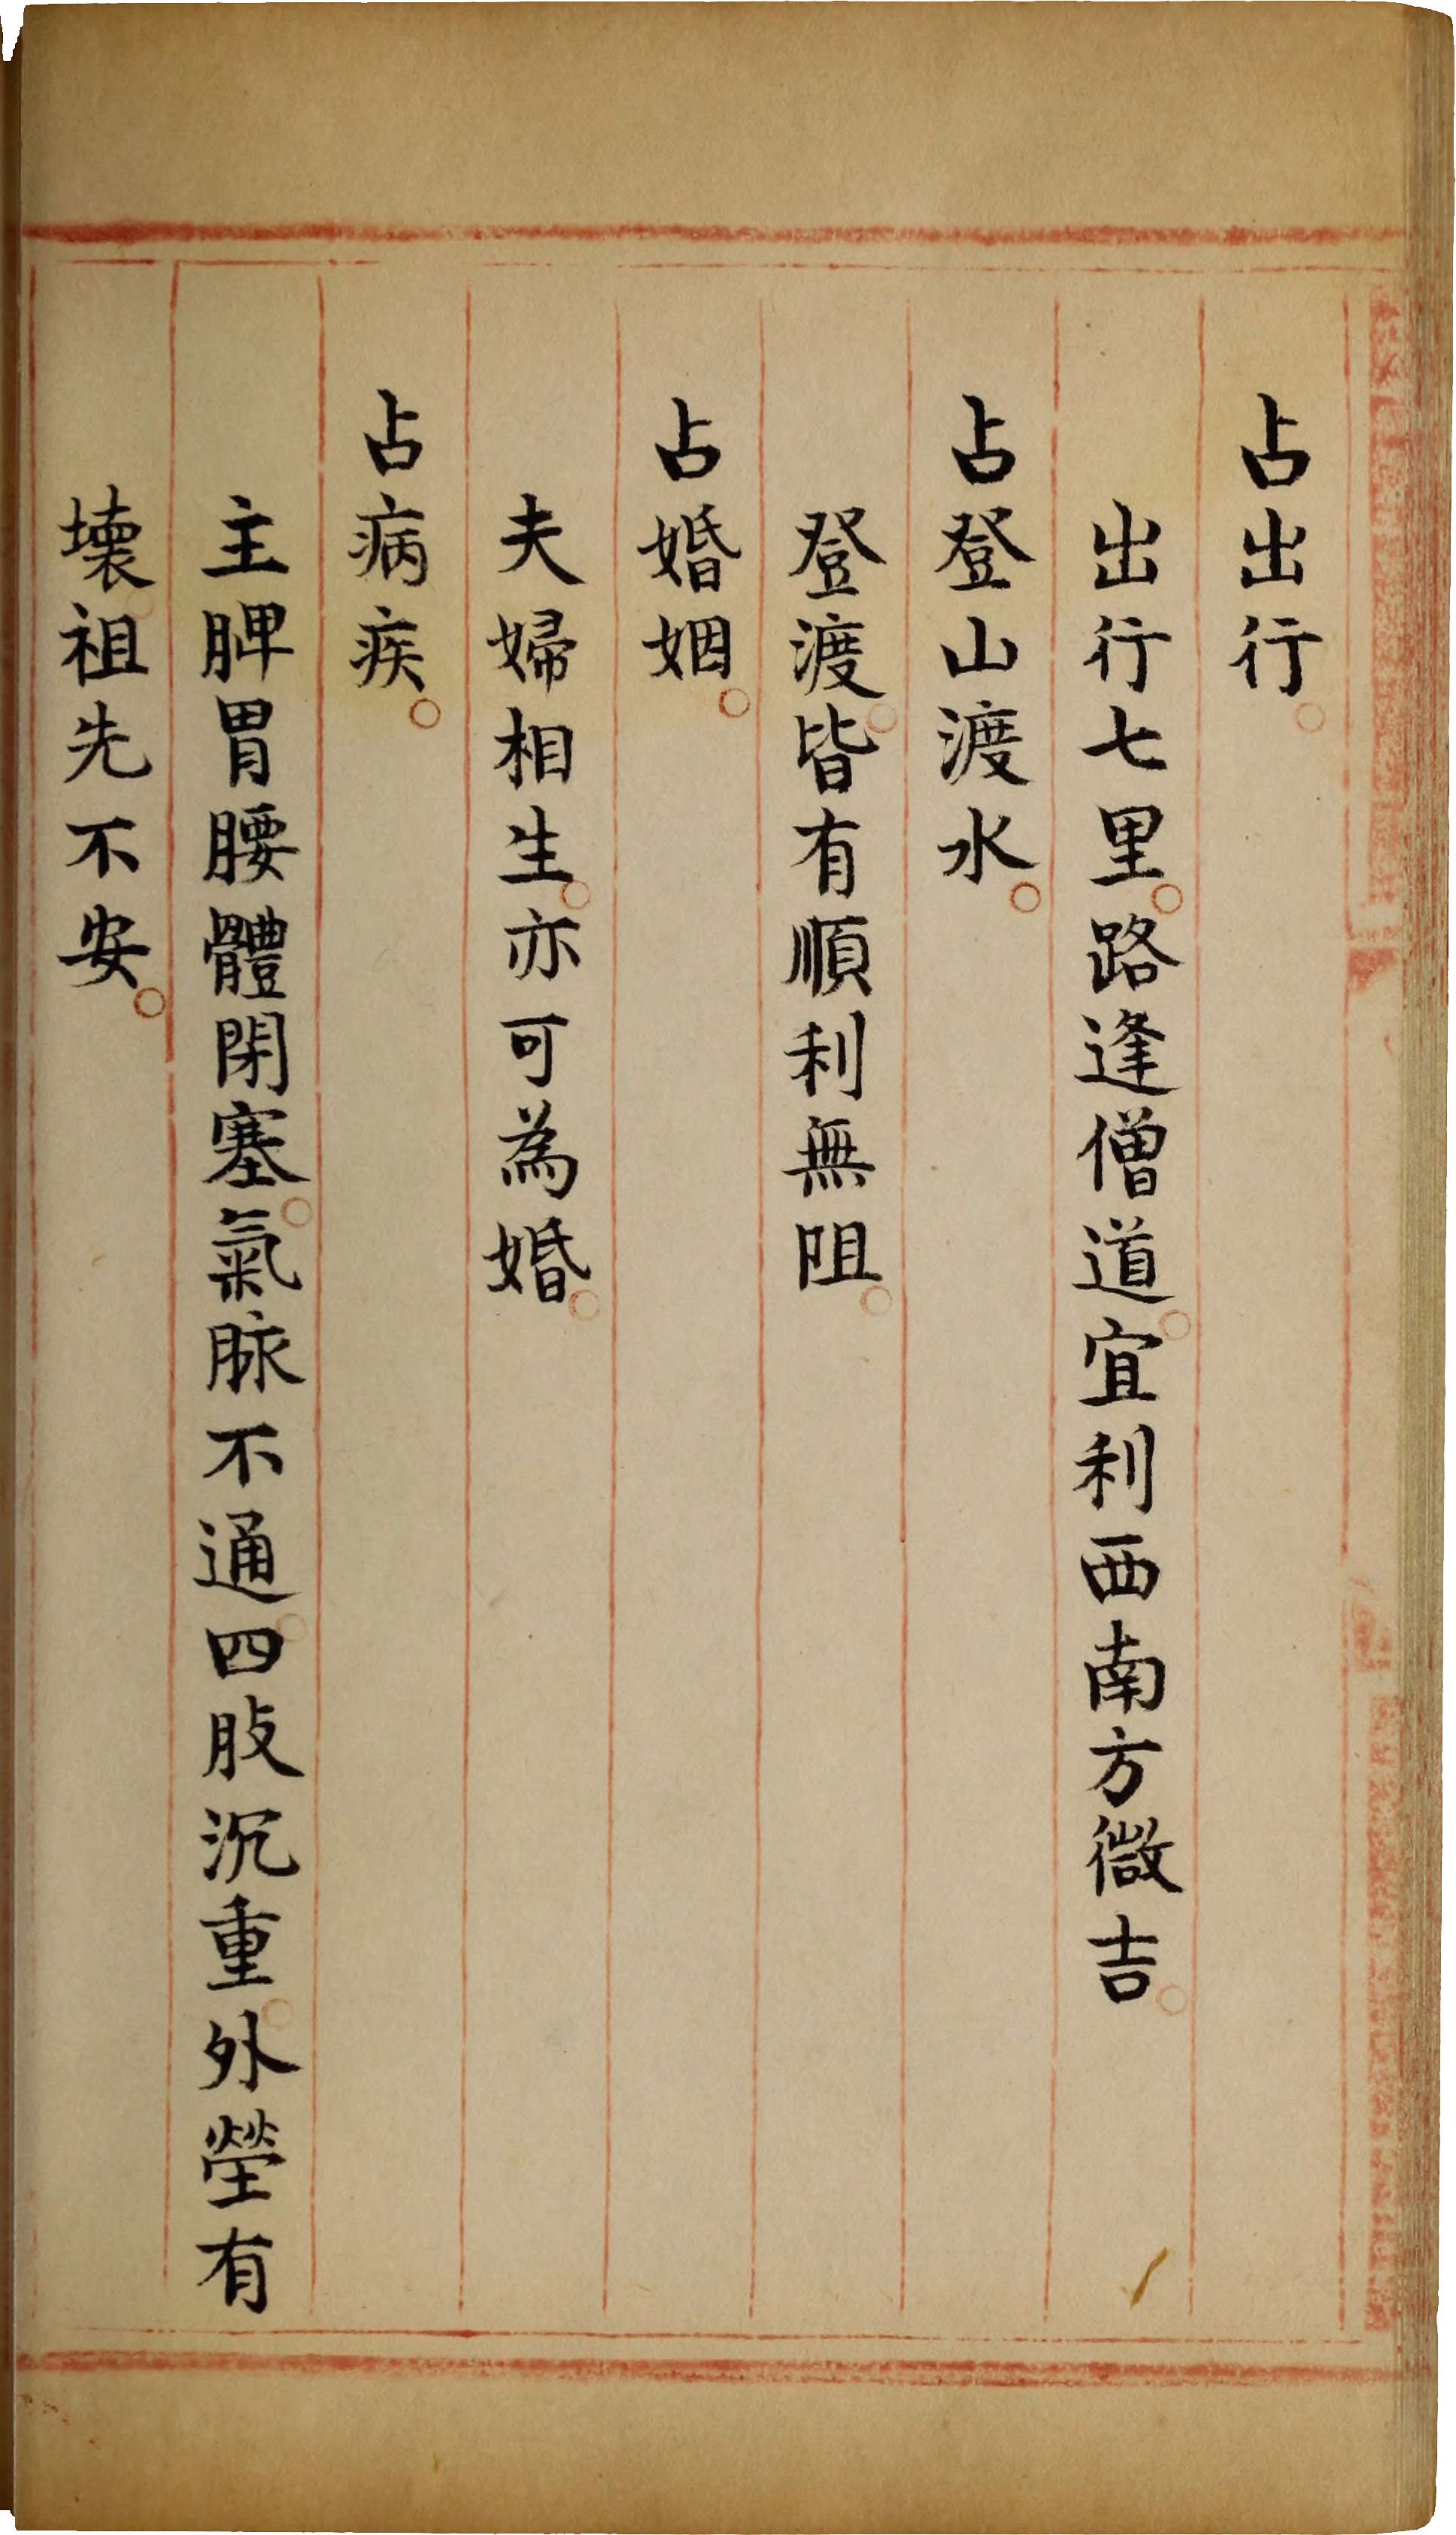 占出行。
出行七里。路逢僧道。宜利西南方微吉。
占登山渡水。
登渡。皆有順利無阻。
占婚姻。
夫婦相生。亦可為婚。
占病疾。
主脾胃腰體閉塞。氣脉不通。四肢沉重。外塋有
壞。祖先不安。